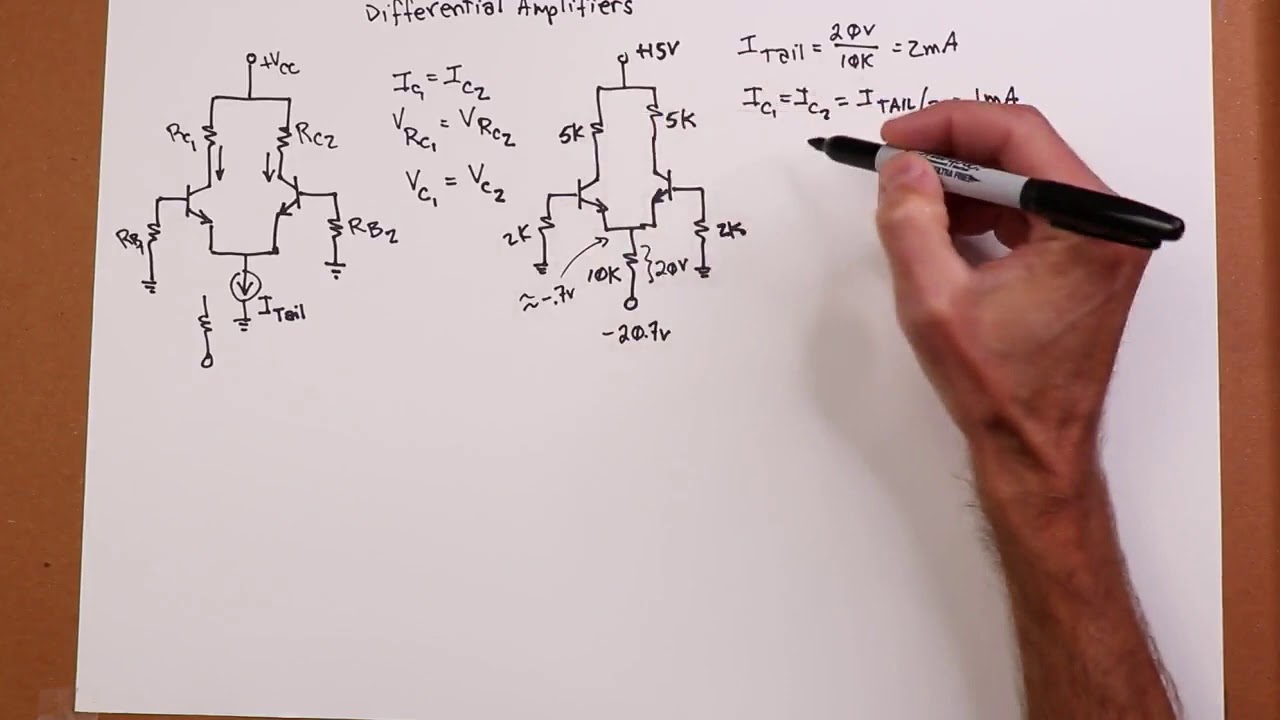 Differential Amplifiers
+Vcc
RC1
RC2
RB1
RB2
ITail
IC1 = IC2
VRC1 = VRC2
VC1 = VC2
+15V
5K
5K
2K
2K
≈-.7v
10K
20v
-20.7v
ITail = 20v / 10K = 2mA
IC1 = IC2 = ITAIL/ = 1mA
ULTRA FINE